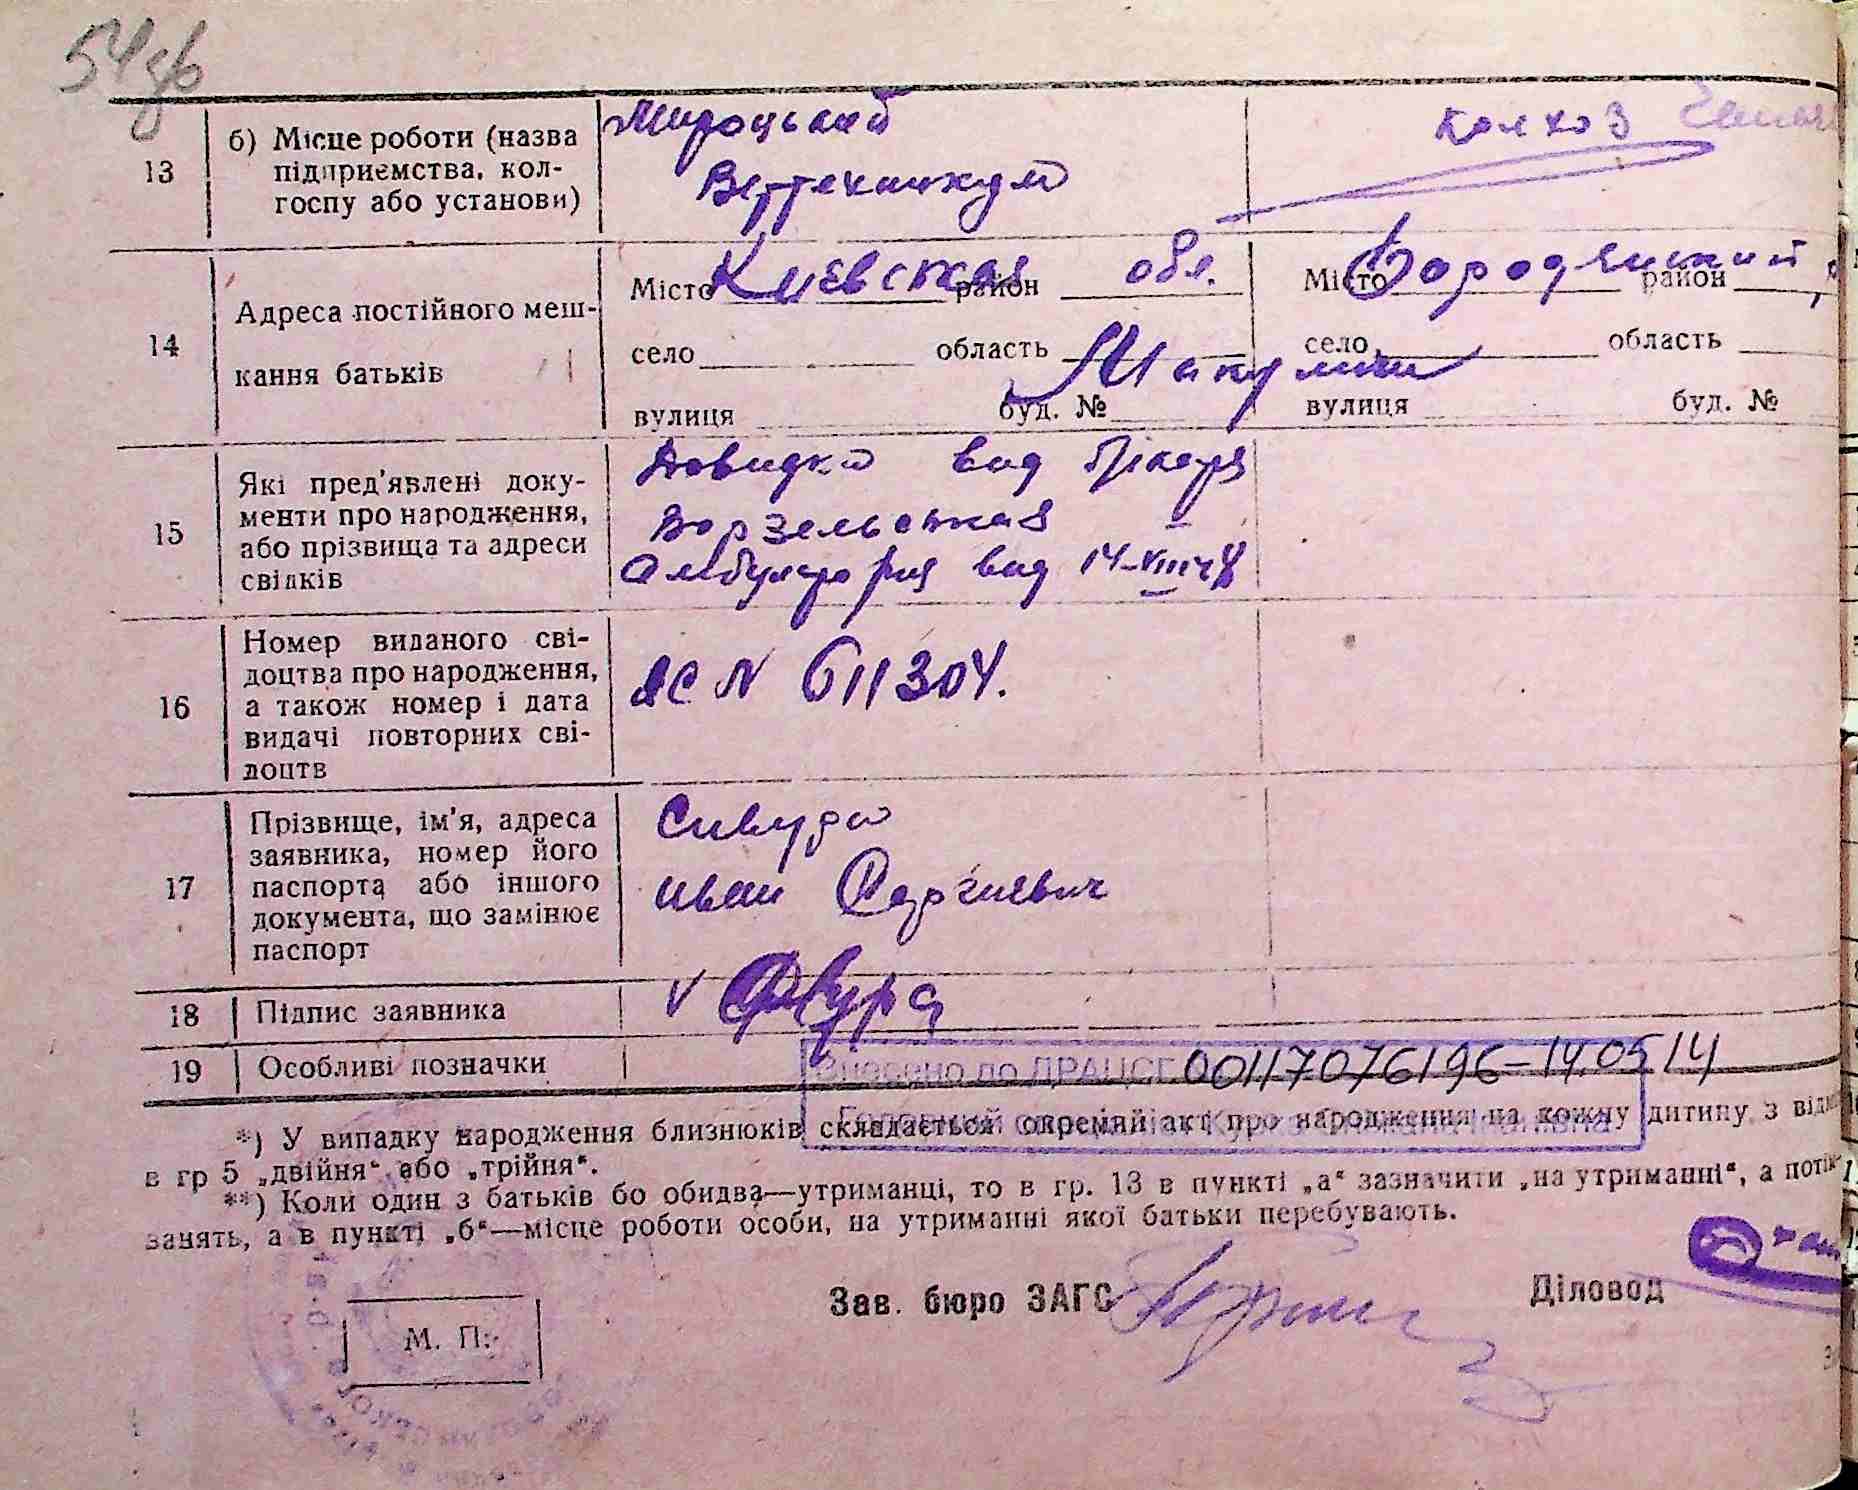 54 зв
13
б) Місце роботи (назва
підприємства, кол-
госпу або установи)
Мироцький
Веттехникум
колхоз
14
Адреса постійного меш-
кання батьків
Місто Киевская район обл.
село область Микуличи
вулиця буд. №
Місто Бородянский район
село область
вулиця буд. №
15
Які пред'явлені доку-
менти про народження,
або прізвища та адреси
свідків
Довидка вид лікаря
Ворзельская
Амбулатория вид 14-VIII 48
16
Номер виданого сві-
доцтва про народження,
а також номер і дата
видачі повторних сві-
доцтв
ЯС N 611304.
17
Прізвище, ім'я, адреса
заявника, номер його
паспорта або іншого
документа, що замінює
паспорт
Сивура
иван Сергиевич
18
Підпис заявника
V
19
Особливі позначки
Внесено до ДРАЦСГ 00117076196-14.05.14
Головний спеціаліст
*) У випадку народження близнюків складається окремий акт про народження на кожну дитину з
в гр 5 „двійня“ або „трійня“.
**) Коли один з батьків бо обидва—утриманці, то в гр. 13 в пункті „а“ зазначити „на утриманні“, а
занять, а в пункті „б“—місце роботи особи, на утриманні якої батьки перебувають.
М. П.
Зав. бюро ЗАГС
Діловод